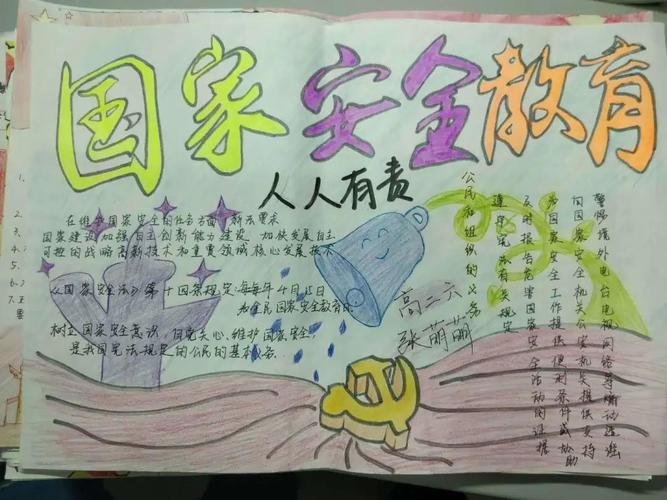 国家安全教育
人人有责
在维护国家安全的任务方面,新法要求
国家建设加强自主创新能力建设,加快发展自主
可控的战略高新技术和重要领域核心发展技术
《国家安全法》第十四条规定:每年4月15日
为全民国家安全教育日
树立国家安全意识,自觉关心、维护国家安全,
是我国宪法规定的公民的基本义务.
高二六
张萌萌
公民和组织的义务
遵守宪法有关规定
及时报告危害国家安全活动的证据
为国家安全工作提供便利条件或协助
向国家安全机关公安机关提供支持
警惕境外电台电视网络等煽动造谣
1.
2.
3.
4.
5.
6.
7.